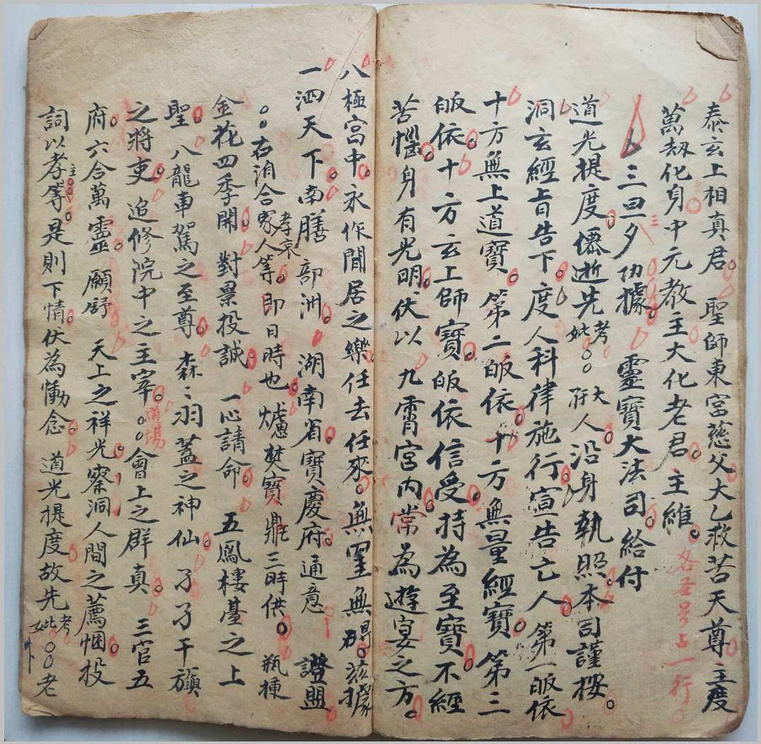 泰玄上相真君 聖師東宮慈父大乙救苦天尊主度
萬刼化身中元教主大化老君主維 各聖号占一行
三旦夕功據 靈寶大法司給付
道光提度僊逝先考妣○○大府人沿身執照本司謹按
洞玄經旨告下度人科律施行宣告亡人第一皈依
十方無上道寶第二皈依十方無量經寶第三
皈依十方玄上師寶皈依信受持為至寶不經
苦惱身有光明伏以九霄宮內常為遊宴之方
八極宮中永作閒居之樂任去任來無罣無碍茲據
一泗天下南膳部洲湖南省寶慶府通意 謹盟
○○右涓合家孝眷人等即日時也爐焚寶鼎三時供瓶插
金花四季開對景投誠一心請命 五鳳樓臺之上
聖八龍車駕之至尊森〻羽蓋之神仙孑孑干旟
之將吏追修院中之主宰○○道場會上之群真三官五
府六合萬靈願舒 天上之祥光察洞人間之薦悃投
詞以孝主○○等是則下情伏為慟念道光提度故先考妣○○老